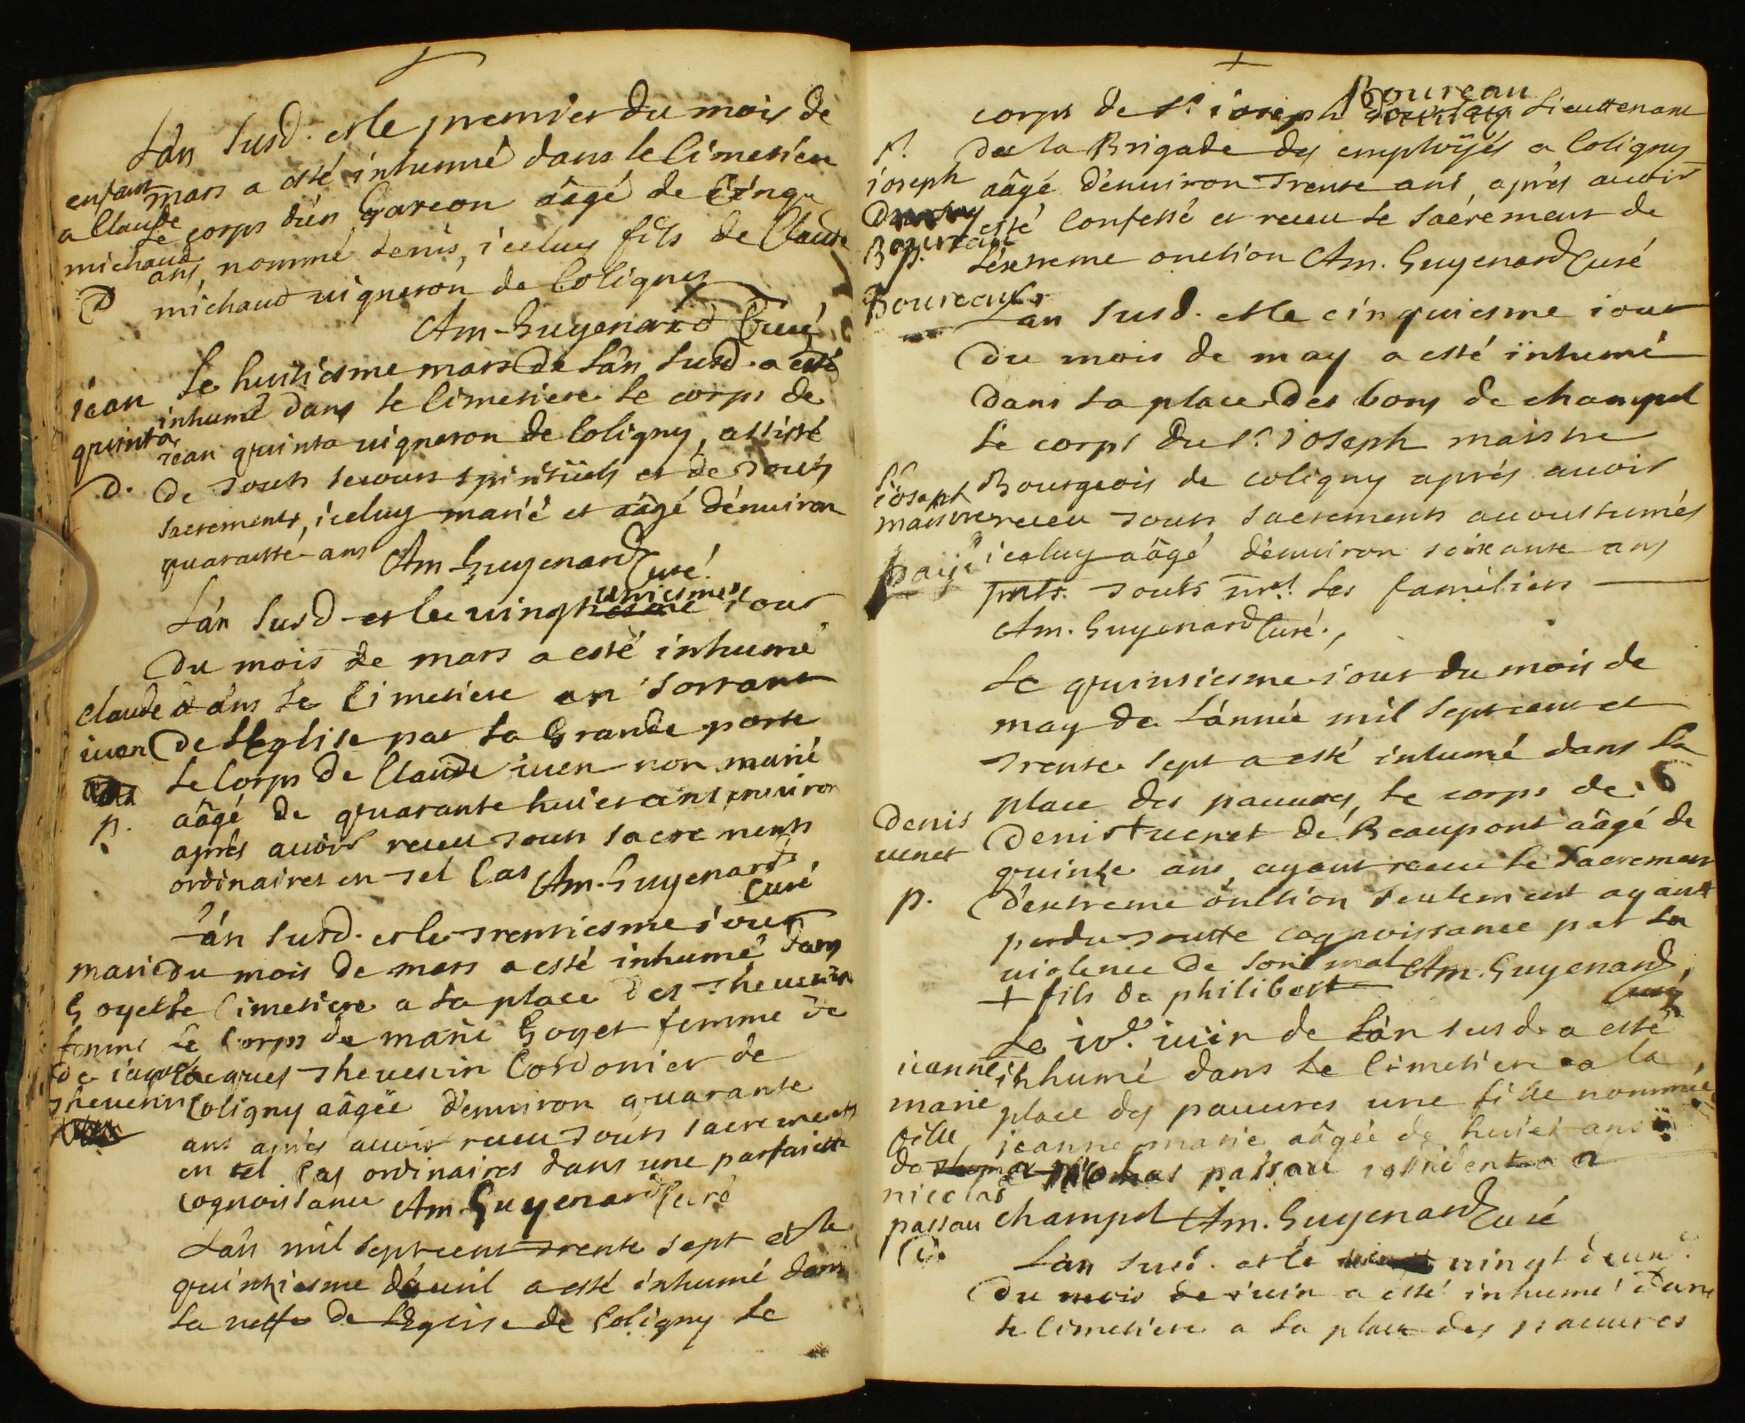 Lán susd. et le premier du mois de
mars a esté inhumé dans le Cimetiere
enfant
a Claude
michaud
D
le corps d'ún Garcon aâgé de Cinq
ans, nommé denis, iceluy fils de Claude
michaud uigneron de Coligny
Am. Guyenard Curé
Le huitiesme mars de lán susd. a esté
jean
quinta
D.
inhumé dans le Cimetiere le corps de
jean quinta uigneron de Coligny, assisté
de touts secours spirituels et de touts
sacrements, iceluy marié et aâgé dénuiron
quarantte ans Am. Guyenard
Curé.
Lán susd. et le uingt uniesme iour
du mois de mars a esté inhumé
claude
iuen
p.
dans le Cimetiere en sortant
de lEglise par la Grande porte
le Corps de Claude iuen non marié
aâgé de quarante huict ans enuiron
aprés auoir receu touts sacrements
ordinaires en tel Cas Am. Guyenard
Curé
Lán susd. et le trentiesme iour
marie
Goyet
femme
de iacques
theuenin
du mois de mars a esté inhumé dans
le Cimetiere a la place des theuenin
le Corps de marie Goyet femme de
iacques theuenin Cordonier de
Coligny aâgée dénuiron quarante
ans aprés auoir receu touts sacrements
en tel Cas ordinaires dans une parfaicte
cognoissance Am. Guyenard Curé
Lán mil septcent trente sept et le
quinziesme dáuril a esté inhumé dans
la neffe de lEglise de Coligny le
corps de Sr. ioseph Boureau Lieuttenant
Sr.
ioseph
Boureau
p.
Boureau
de la Brigade des employés a Coligny
aâgé dénuiron trente ans, aprés auoir
esté Confessé et receu le sacrement de
léxtreme onction Am. Guyenard Curé
Lan susd. et le cinquiesme iour
du mois de may a esté inhumé
dans la place des bons de champel
le corps du Sr. ioseph maistre
Sr.
ioseph
maistre
payé
Bourgeois de coligny aprés auoir
receu touts sacrements accoustumés
iceluy aâgé dénuiron soixante ans
pnts. touts mrs. les familiers
Am. Guyenard Curé.
Le quinsiesme iour du mois de
may de lánnée mil septcent et
trente sept a esté inhumé dans la
place des pauures, le corps de
Denis
uenet
p.
Denis + uenet de Beaupont aâgé de
quinze ans, ayant receu le sacrement
déxtreme onction seulement ayant
perdu toutte cognoissance par la
uiolence de son mal Am. Guyenard
Curé
+ fils de philibert
Le 10e. iuin de lán susd. a esté
ieanne
marie
fille
de
nicolas
passau
inhumé dans le Cimetiere a la
place des pauures une fille nommée
jeanne marie aâgée de huict ans
a nicolas passau resident a
champel Am. Guyenard Curé
Lan susd. et le uingt deuxe.
du mois de iuin a esté inhumé dans
le Cimetiere a la place des pauures